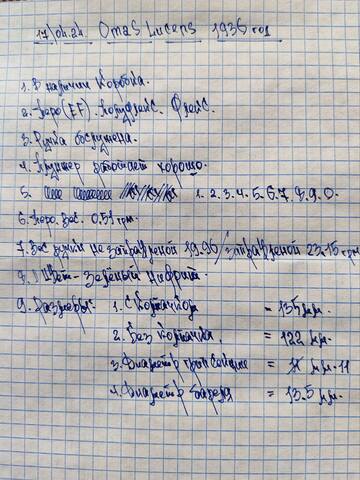 17/04.24. Omas Lucens 1936 год
1. В наличии коробка.
2. Перо (EF). Полуфлекс. Флекс.
3. Ручка обслужена.
4. Плунжер работает хорошо.
5. 1. 2. 3. 4. 5. 6. 7. 8. 9. 0.
6. Перо. Вес. 0.51 грм.
7. Вес ручки не заправленой 19.96/заправленой 23.15 грм
8. Цвет - Зелёный Нифрит.
9. Размеры: 1. С колпачком = 135 мм.
2. Без колпачка. = 122 мм.
3. Диаметр грипсекции = 11 мм. 11
4. Диаметр барела = 13.5 мм.